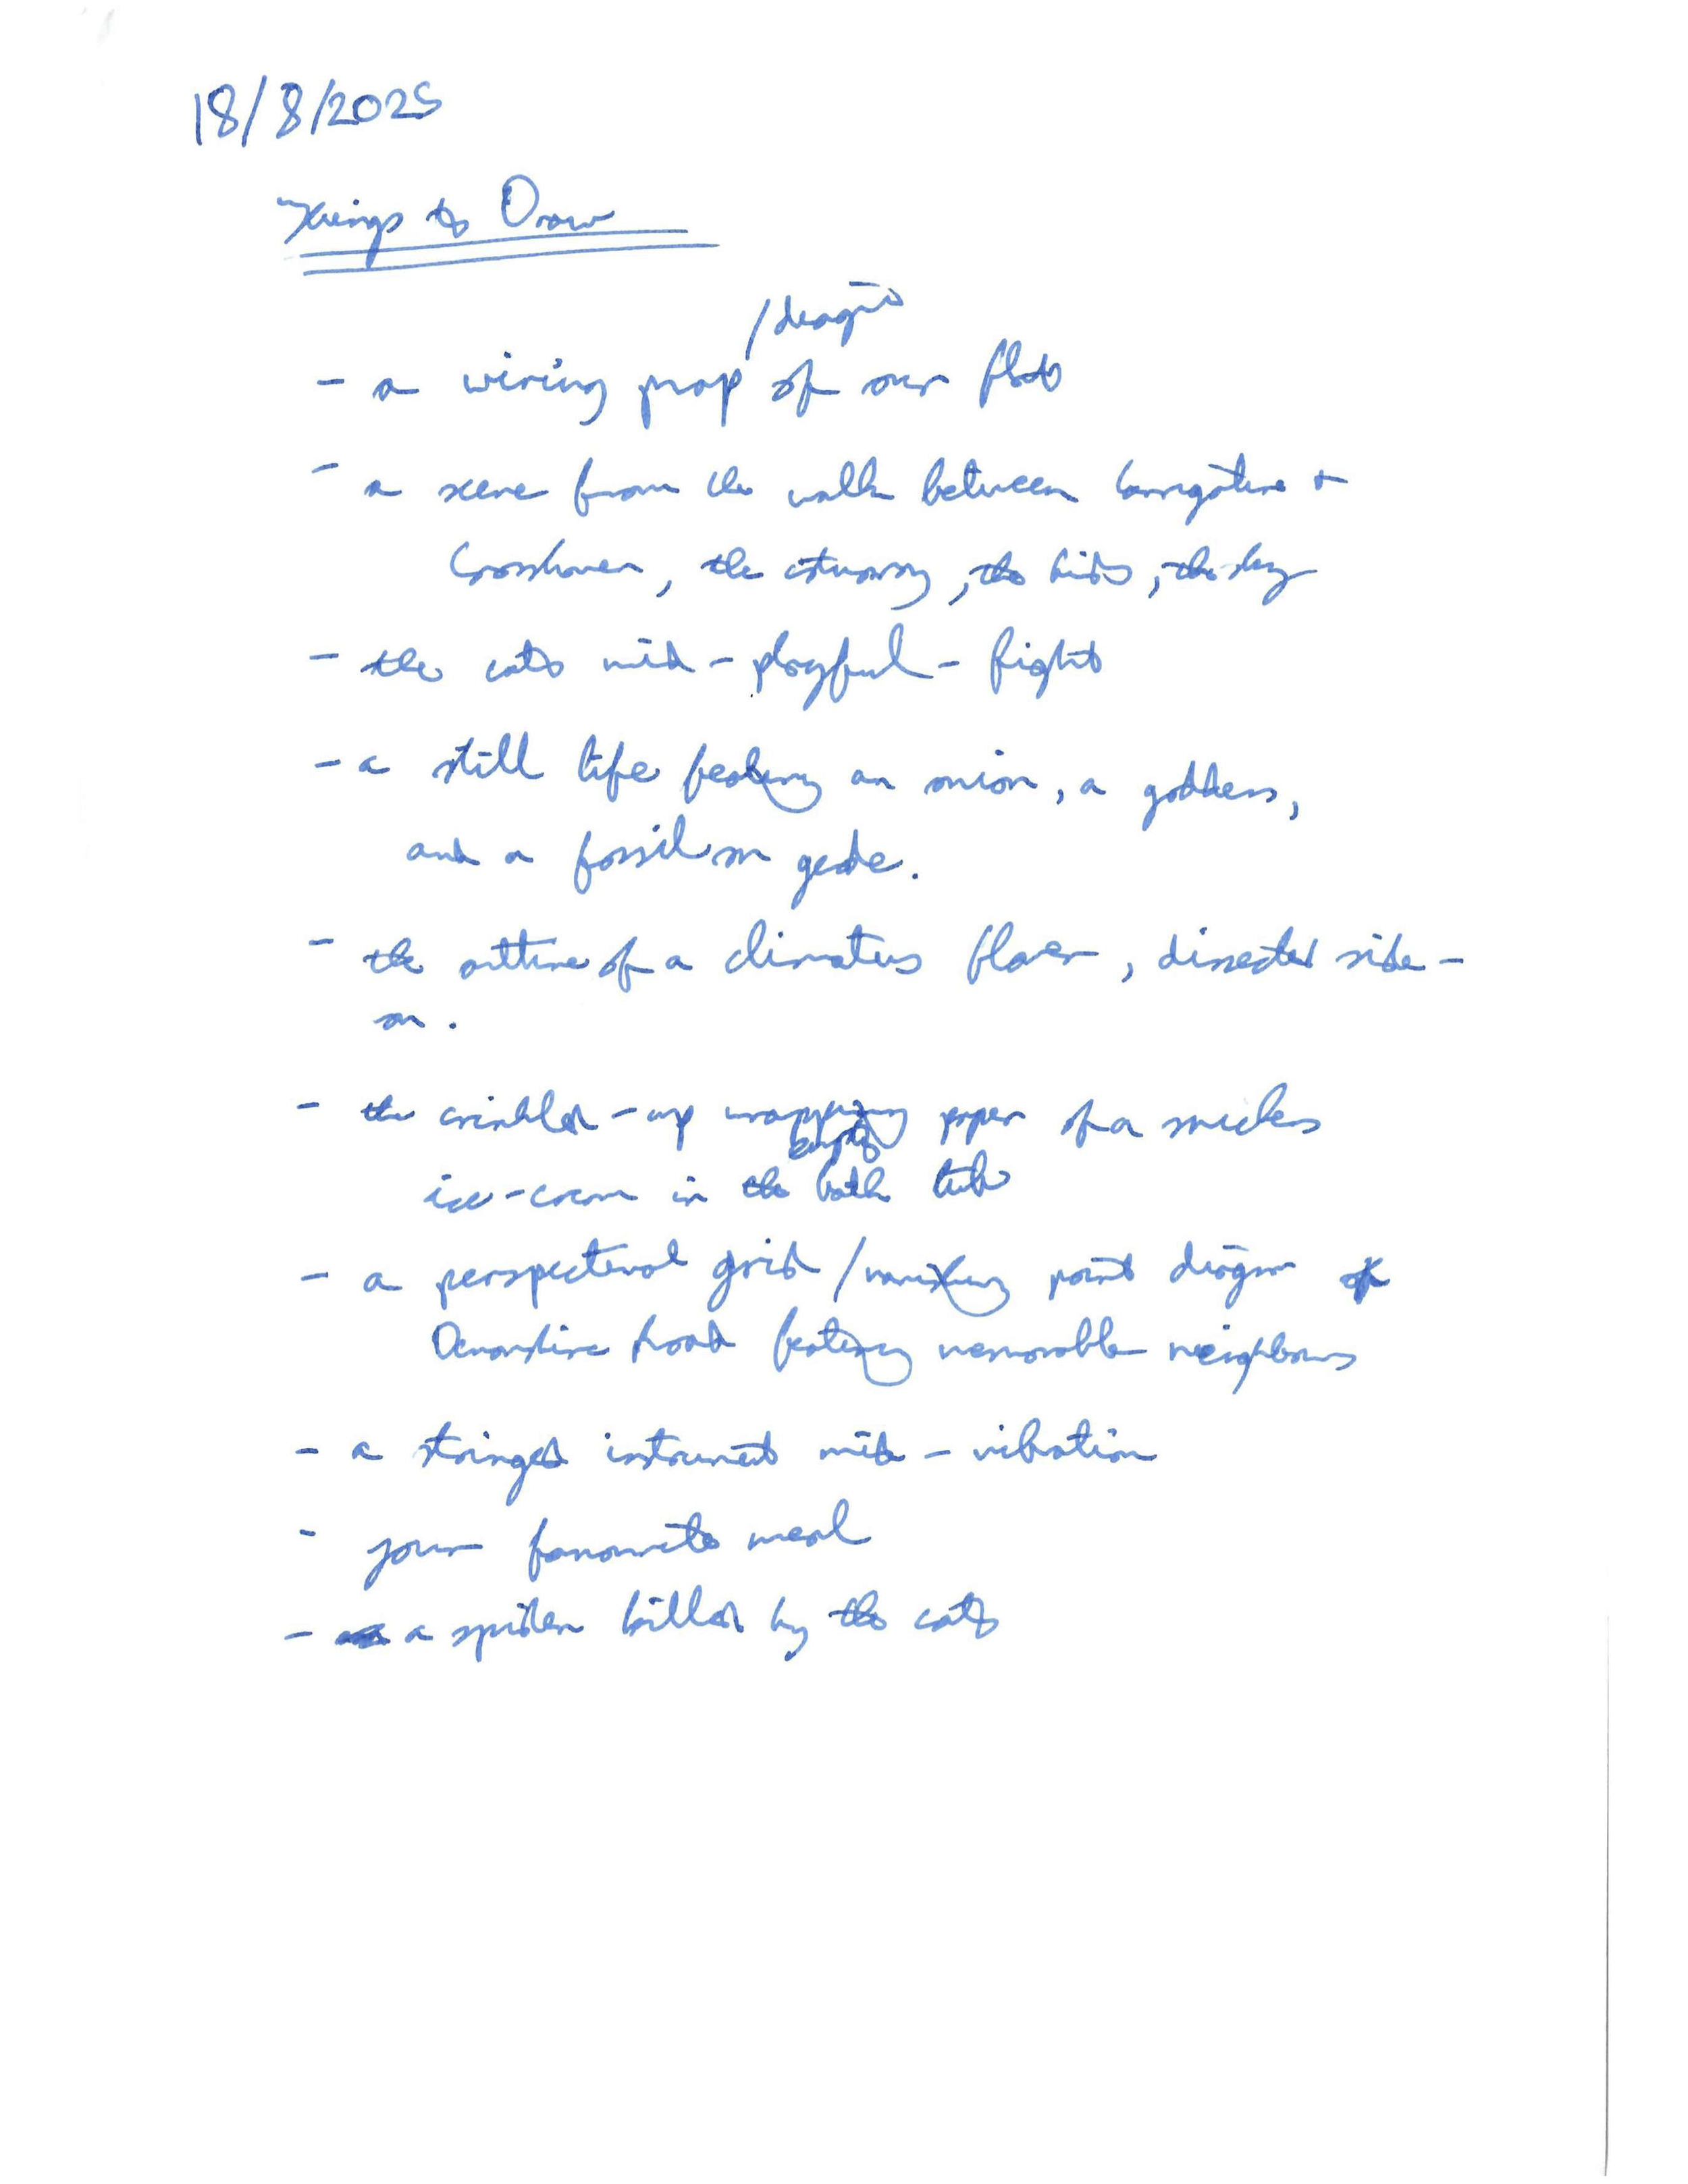 18/8/2025
Things to Draw
/diagram
- a wiring map of our flat
- a scene from the walk between Carrigaline +
Crosshaven, the estuary, the birds, the sky
- the cats mid-playful-fight
- a still life featuring an onion, a goddess,
and a fossil or geode.
- the outline of a climatus flower, dissected side-
on.
- the crinkled-up wrapping paper of a
empty
ice-cream in the bath tub
- a perspectival grid / vanishing point diagram of
Devonshire Road featuring memorable neighbours
- a stringed instrument mid-vibration
- your favourite meal
- a spider killed by the cats